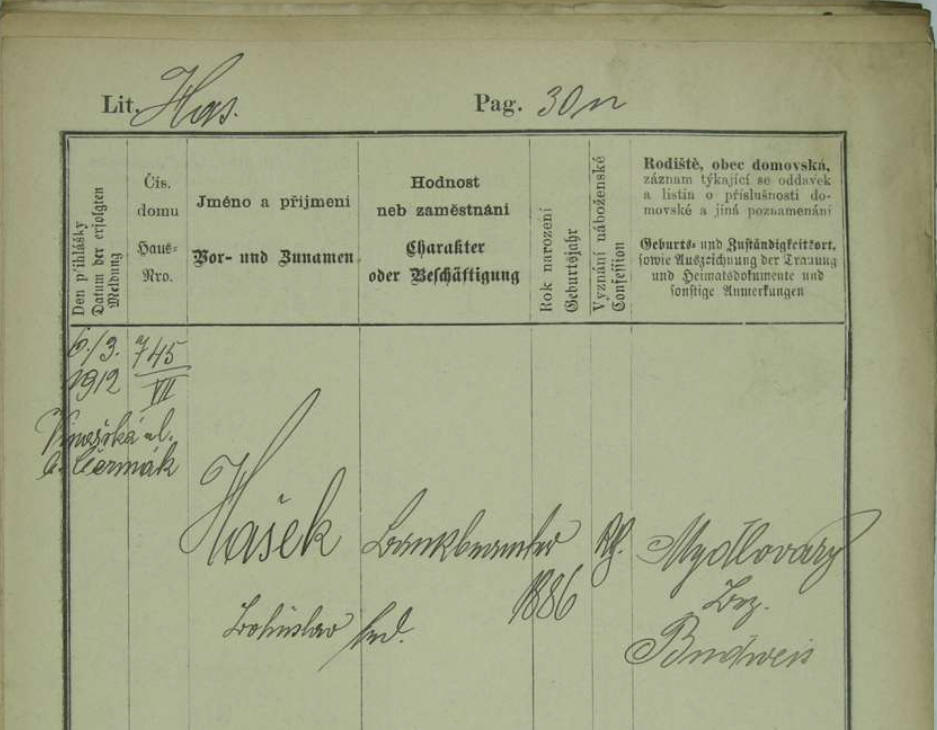 Lit. Has.
Pag. 30 n
Den přihlášky
Datum der erfolgten
Meldung
Čís.
domu
Haus-
Nro.
Jméno a přijmení
Vor- und Zunamen.
Hodnost
neb zaměstnání
Charakter
oder Beschäftigung
Rok narození
Geburtsjahr
Vyznání náboženské
Confession
Rodiště, obec domovská,
záznam týkající se oddavek
a listin o příslušnosti do-
movské a jiná poznamenání
Geburts- und Zuständigkeitsort,
sowie Auszeichnung der Trauung
und Heimatsdokumente und
sonstige Anmerkungen
6./3.
1912
745
VII
ul.
Čermák
Hašek
Bohuslav
Bankbeamter
led.
1886
Rk.
Mydlovary
Bez.
Budweis